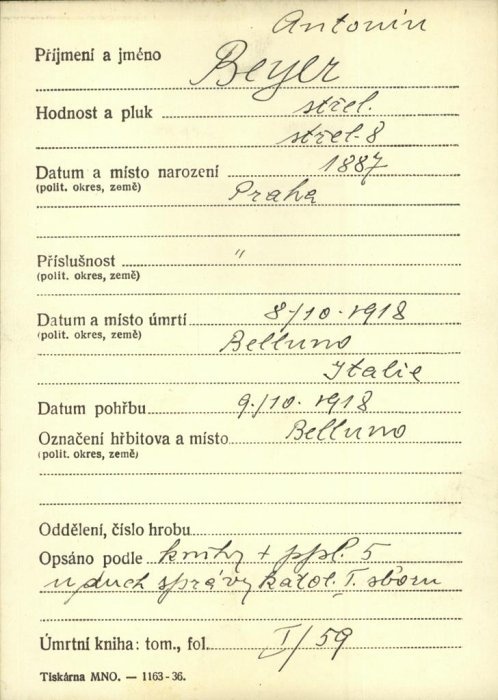 Antonín
Příjmení a jméno Beyer
Hodnost a pluk střel.
střel. 8
Datum a místo narození 1887
(polit. okres, země) Praha
Příslušnost "
(polit. okres, země)
Datum a místo úmrtí 8/10. 1918
(polit. okres, země) Belluno
Italie
Datum pohřbu 9./10. 1918
Označení hřbitova a místo Belluno
(polit. okres, země)
Oddělení, číslo hrobu
Opsáno podle knihy + ppl. 5
duch správy katol. I. sboru
Úmrtní kniha: tom., fol. I/59
Tiskárna MNO. — 1163-36.